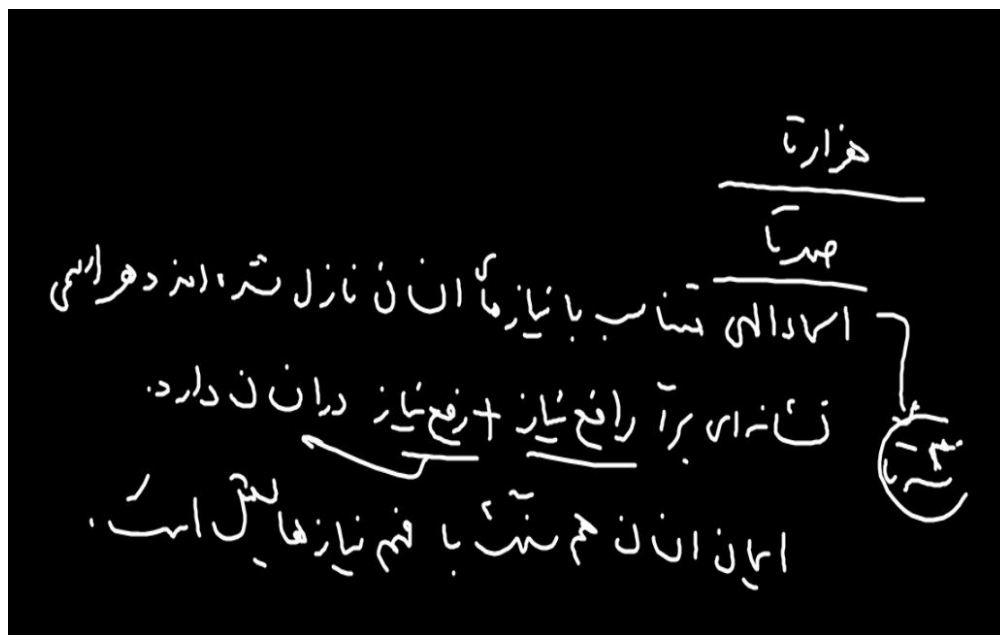 هزارتا
صدتا
اسماء الهی متناسب با نیازهای انسان نازل شده‌اند و هر اسمی
نشانه‌ای برای رافع نیاز + رفع نیاز در انسان دارد.
ایمان انسان هم با فهم نیازهایش است.